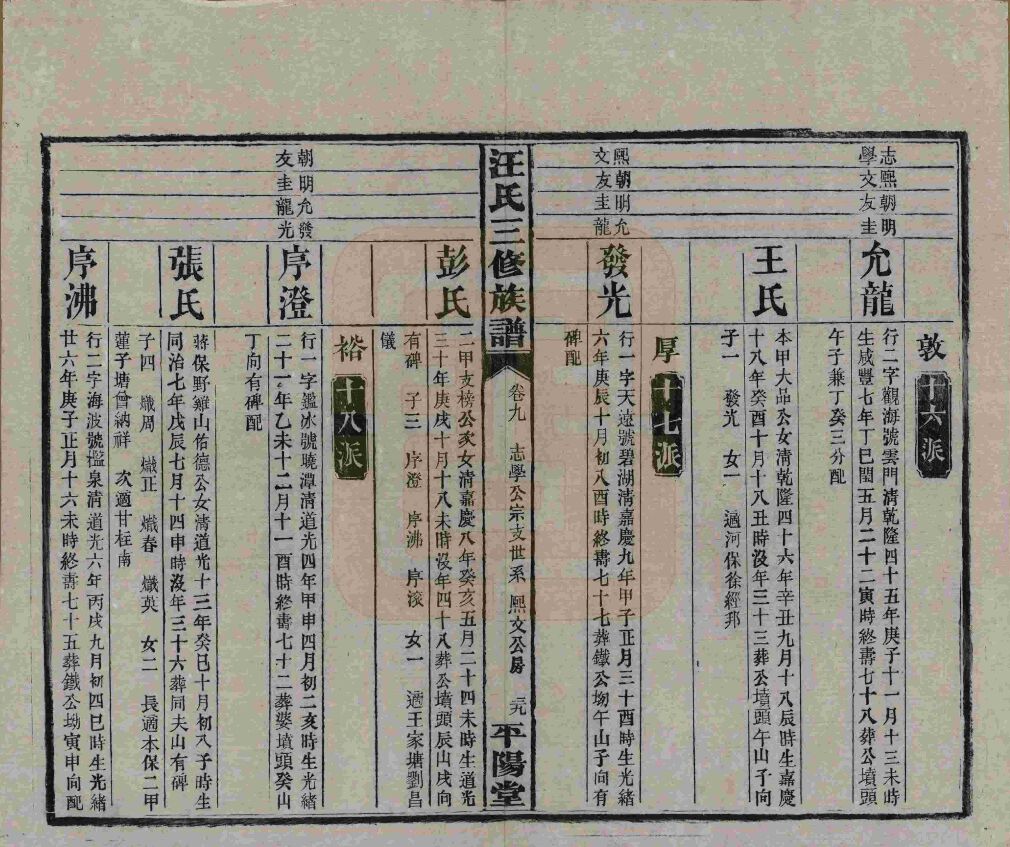 敦
十六派
志熙朝明
學文友圭
允龍
行二字觀海號雲門清乾隆四十五年庚子十一月十三未時
生咸豐七年丁巳閏五月二十二寅時終壽七十八葬公墳頭
午子兼丁癸三分配
王氏
本甲大品公女清乾隆四十六年辛丑九月十八辰時生嘉慶
十八年癸酉十月十八丑時沒年三十三葬公墳頭午山子向
子一 發光 女一 適河保徐經邦
厚
十七派
熙朝明允
文友圭龍
發光
行一字天遠號碧湖清嘉慶九年甲子正月三十酉時生光緒
六年庚辰十月初八酉時終壽七十七葬鐵公坳午山子向有
碑配
汪氏三修族譜
卷九 志學公宗支世系 熙文公房 三九
平陽堂
彭氏
二甲支榜公次女清嘉慶八年癸亥五月二十四未時生道光
三十年庚戌十月十八未時沒年四十八葬公墳頭辰山戌向
有碑 子三 序澄 序沸 序滚 女一 適王家塘劉昌
儀
裕
十八派
朝明允發
友圭龍光
序澄
行一字鑑冰號曉潭清道光四年甲申四月初二亥時生光緒
二十一年乙未十二月十一酉時終壽七十二葬婆墳頭癸山
丁向有碑配
張氏
蔣保野雞山佑德公女清道光十三年癸巳十月初八子時生
同治七年戊辰七月十四申時沒年三十六葬同夫山有碑
子四 熾周 熾正 熾春 熾英 女二 長適本保二甲
蓮子塘曾納祥 次適甘桂南
序沸
行二字海波號檻泉清道光六年丙戌九月初四巳時生光緒
廿六年庚子正月十六未時終壽七十五葬鐵公坳寅申向配